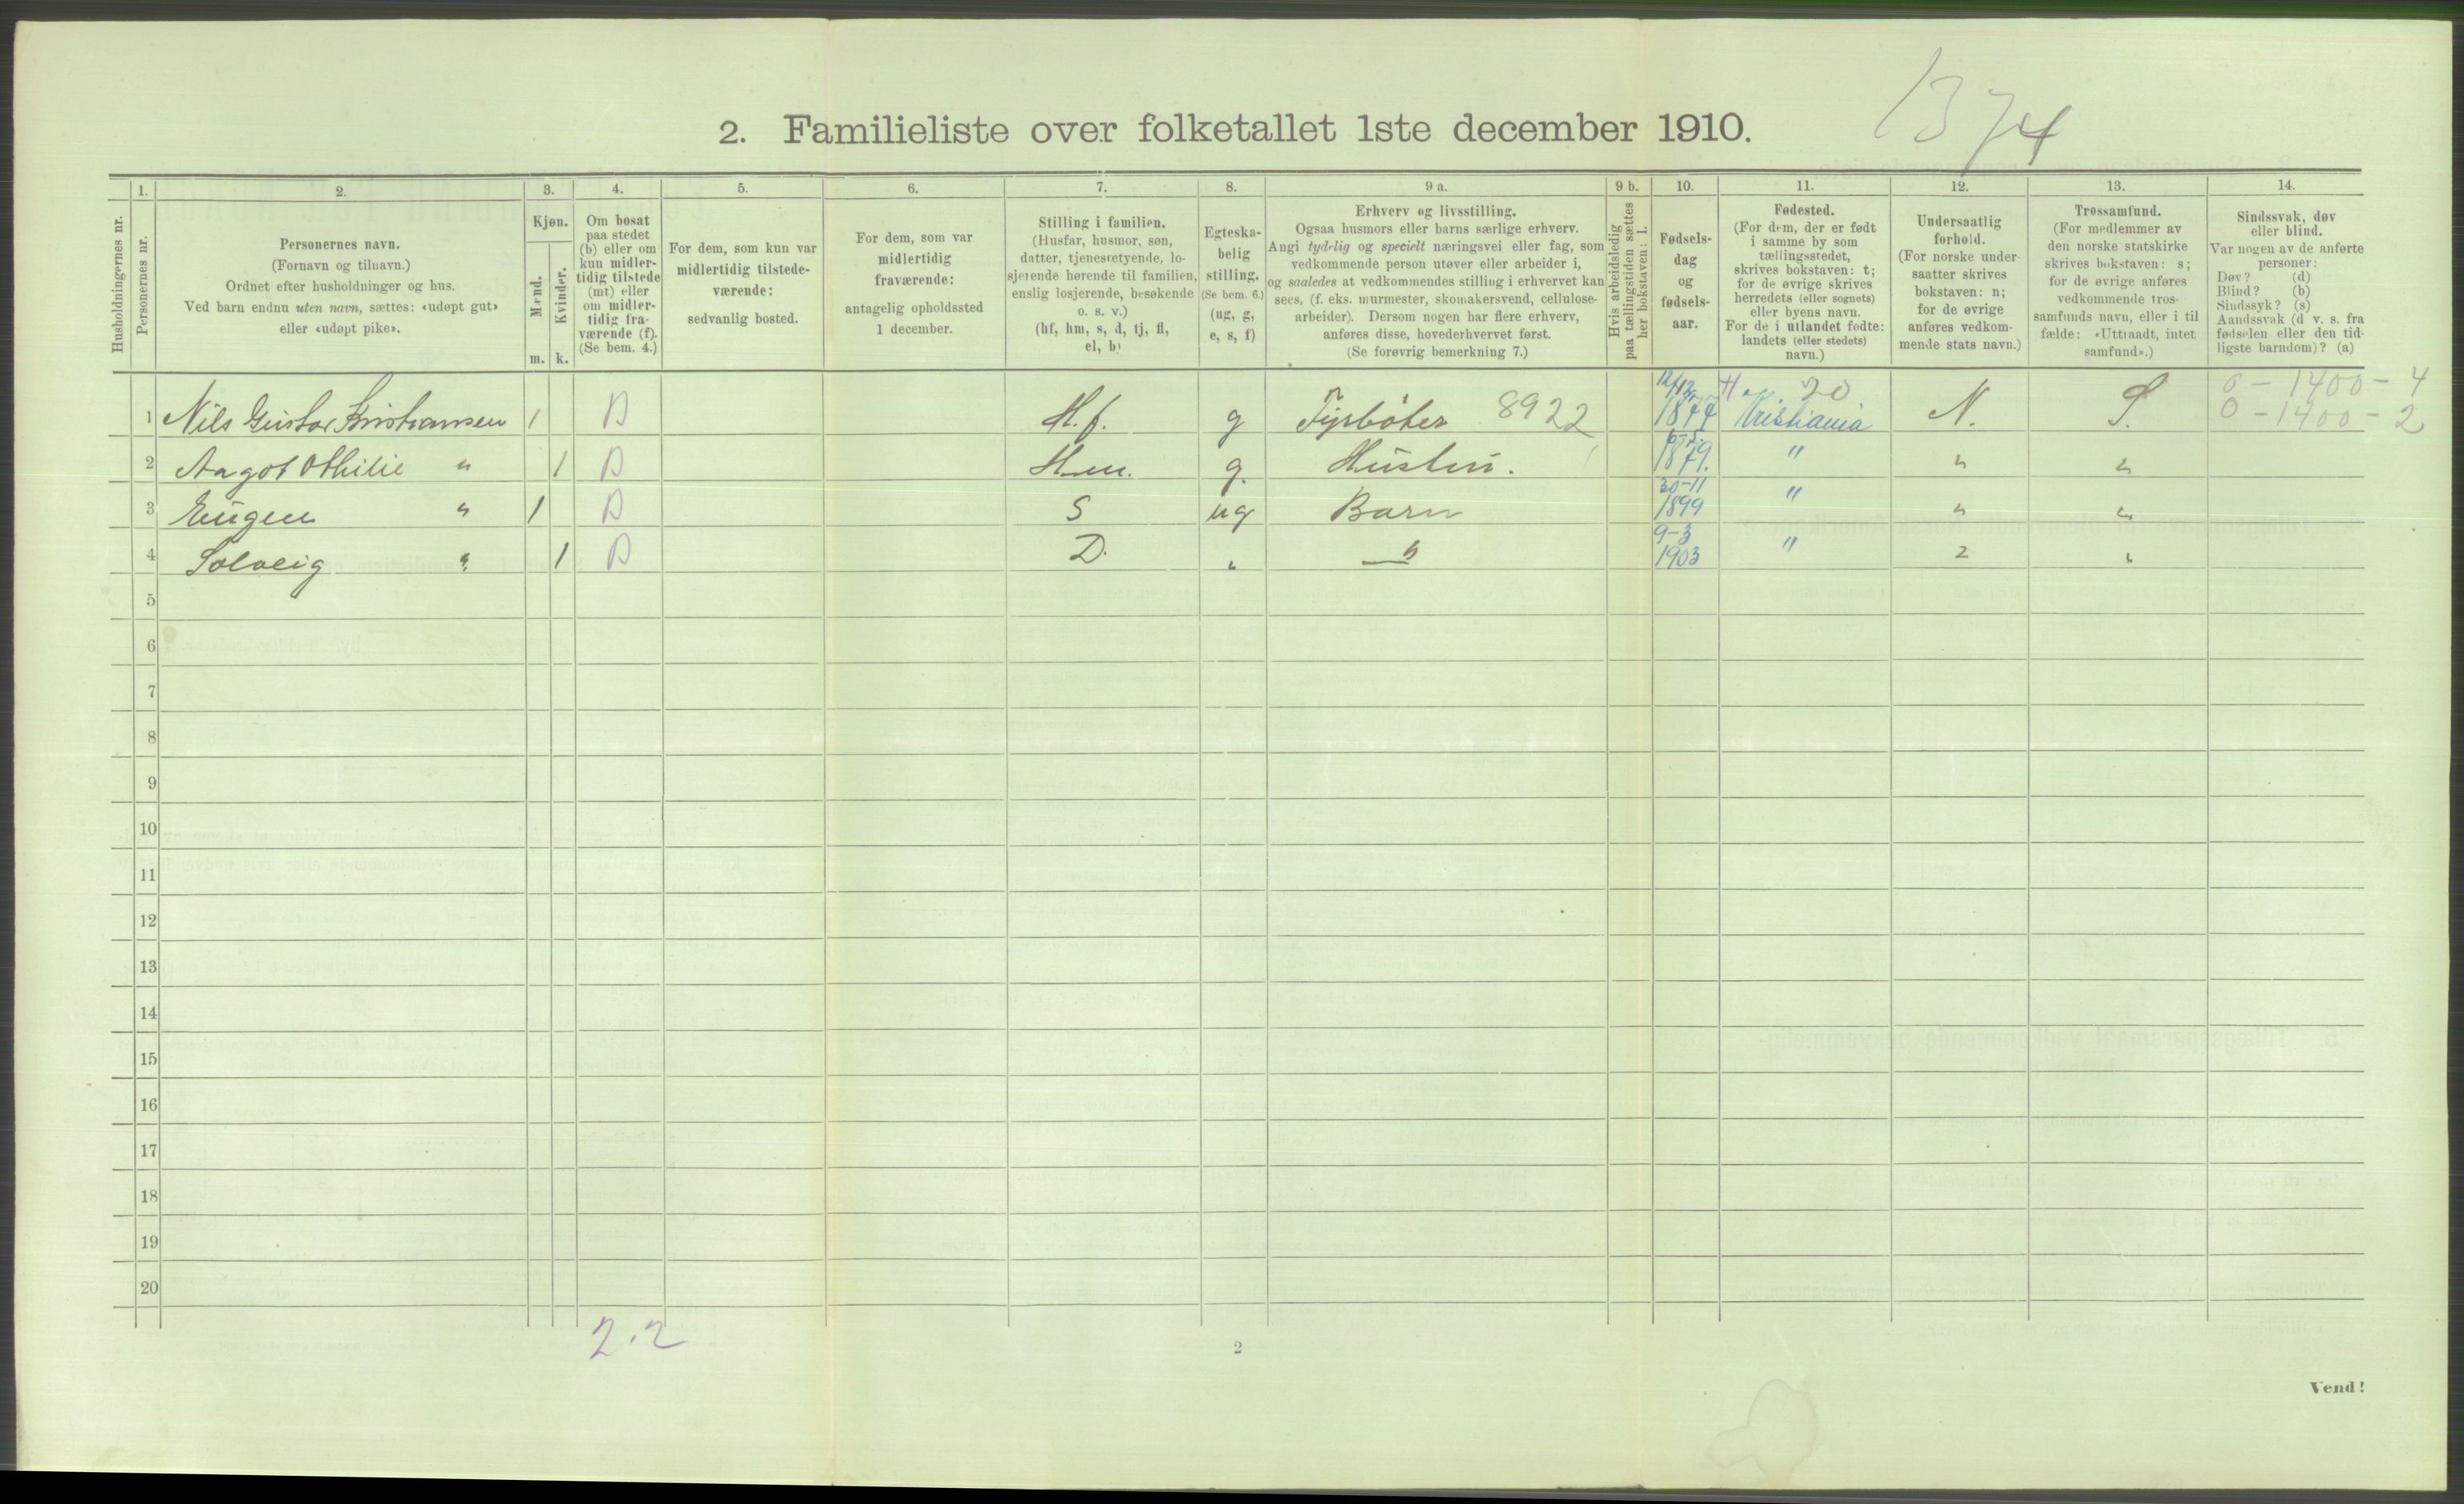 1374
2. Familieliste over folketallet 1ste december 1910.
Husholdningernes nr.
1. Personernes nr.
2. Personernes navn.
(Fornavn og tilnavn.)
Ordnet efter husholdninger og hus.
Ved barn endnu uten navn, sættes: «udøpt gut»
eller «udøpt pike».
3. Kjøn.
Mænd. m.
Kvinder. k.
4. Om bosat
paa stedet
(b) eller om
kun midler-
tidig tilstede
(mt) eller
om midler-
tidig fra-
værende (f).
(Se bem. 4.)
5. For dem, som kun var
midlertidig tilstede-
værende:
sedvanlig bosted.
6. For dem, som var
midlertidig
fraværende:
antagelig opholdssted
1 december.
7. Stilling i familien.
(Husfar, husmor, søn,
datter, tjenestetyende, lo-
sjerende hørende til familien,
enslig losjerende, besøkende
o. s. v.)
(hf, hm, s, d, tj, fl,
el, b)
8. Egteska-
belig
stilling.
(Se bem. 6.)
(ug, g,
e, s, f)
9 a. Erhverv og livsstilling.
Ogsaa husmors eller barns særlige erhverv.
Angi tydelig og specielt næringsvei eller fag, som
vedkommende person utøver eller arbeider i,
og saaledes at vedkommendes stilling i erhvervet kan
sees, (f. eks. murmester, skomakersvend, cellulose-
arbeider). Dersom nogen har flere erhverv,
anføres disse, hovederhvervet først.
(Se forøvrig bemerkning 7.)
9 b. Hvis arbeidsledig
paa tællingstiden sættes
her bokstaven: l.
10. Fødsels-
dag
og
fødsels-
aar.
11. Fødested.
(For dem, der er født
i samme by som
tællingsstedet,
skrives bokstaven: t;
for de øvrige skrives
herredets (eller sognets)
eller byens navn.
For de i utlandet fødte:
landets (eller stedets)
navn.)
12. Undersaatlig
forhold.
(For norske under-
saatter skrives
bokstaven: n;
for de øvrige
anføres vedkom-
mende stats navn.)
13. Trossamfund.
(For medlemmer av
den norske statskirke
skrives bokstaven: s;
for de øvrige anføres
vedkommende tros-
samfunds navn, eller i til
fælde: «Uttraadt, intet
samfund».)
14. Sindssvak, døv
eller blind.
Var nogen av de anførte
personer:
Døv? (d)
Blind? (b)
Sindssyk? (s)
Aandssvak (d. v. s. fra
fødselen eller den tid-
ligste barndom)? (a)
20 0 - 1400 - 4
1 Nils Gustav Kristiansen 1 B H.f. g Fyrbøter 8922 12/12 1877 Kristiania N. S. 0 - 1400 - 2
2 Aagot Othilie " 1 B Hm. g. Hustru. 1879. " " "
3 Eugen " 1 B S ug Barn 30-11 1899 " " "
4 Solveig " 1 B D. " " 9-3 1903 " " "
5
6
7
8
9
10
11
12
13
14
15
16
17
18
19
20
2.2
2
Vend!